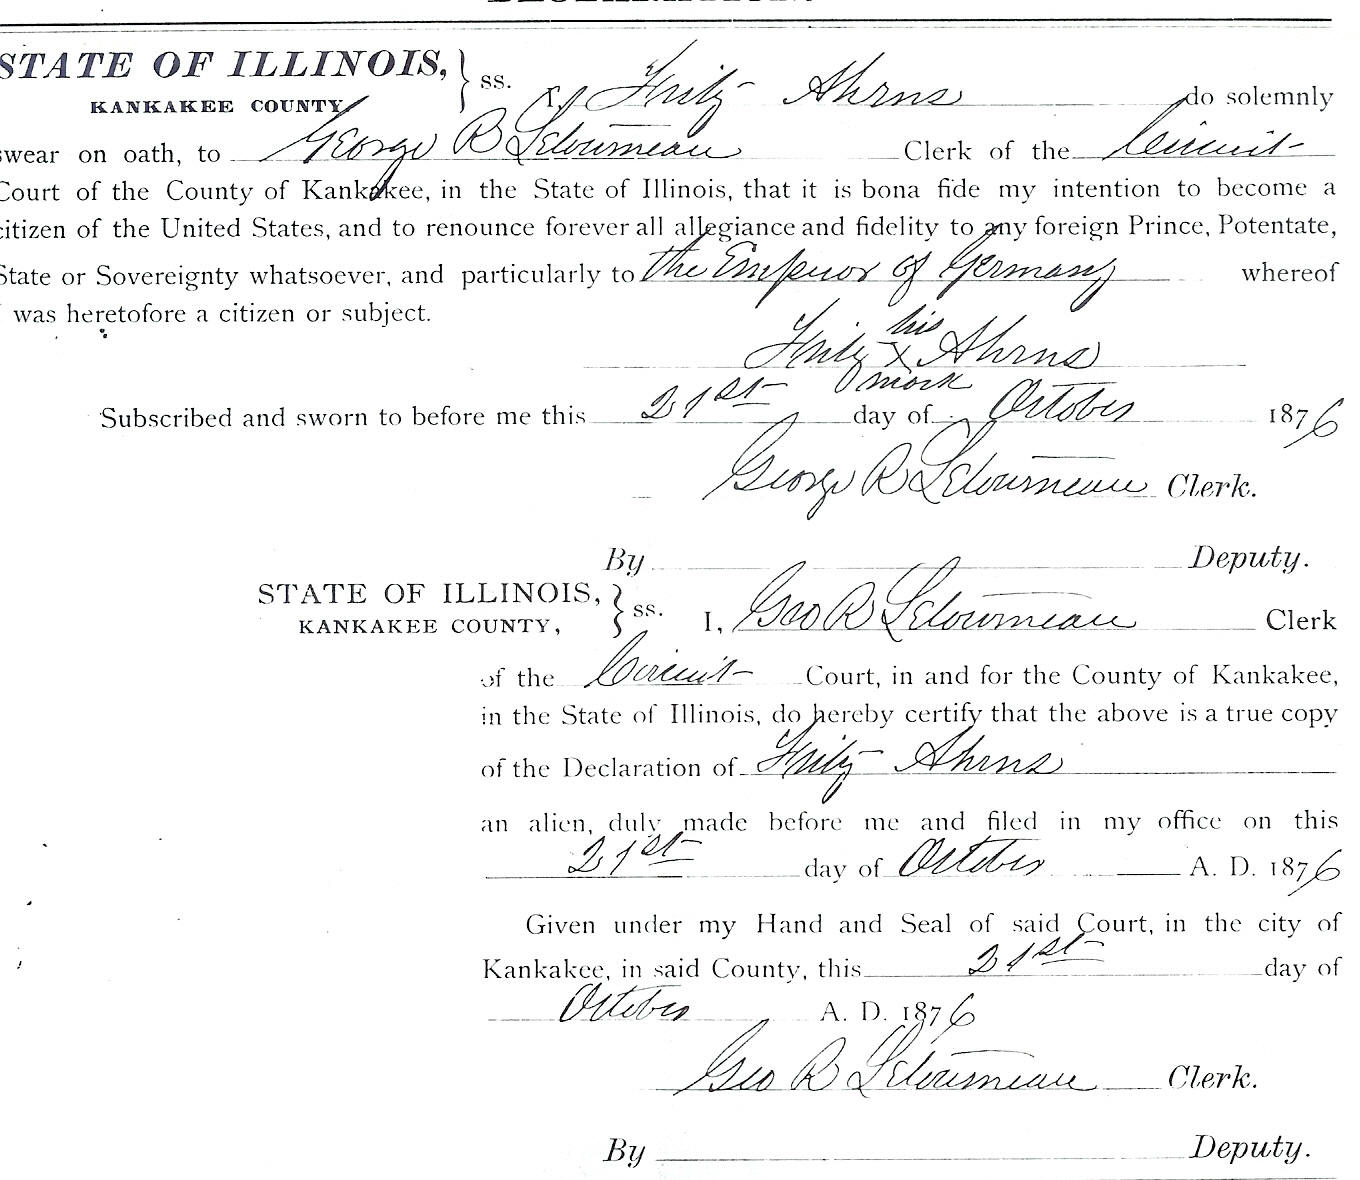 STATE OF ILLINOIS, } ss. I, Fritz Ahrns do solemnly
KANKAKEE COUNTY
swear on oath, to George R Letourneau Clerk of the Circuit
Court of the County of Kankakee, in the State of Illinois, that it is bona fide my intention to become a
citizen of the United States, and to renounce forever all allegiance and fidelity to any foreign Prince, Potentate,
State or Sovereignty whatsoever, and particularly to the Emperor of Germany whereof
I was heretofore a citizen or subject.
his
Fritz X Ahrns
mark
Subscribed and sworn to before me this 21st day of October 1876
George R Letourneau Clerk.
By Deputy.
STATE OF ILLINOIS, } ss. I, Geo R Letourneau Clerk
KANKAKEE COUNTY,
of the Circuit Court, in and for the County of Kankakee,
in the State of Illinois, do hereby certify that the above is a true copy
of the Declaration of Fritz Ahrns
an alien, duly made before me and filed in my office on this
21st day of October A. D. 1876
Given under my Hand and Seal of said Court, in the city of
Kankakee, in said County, this 21st day of
October A. D. 1876
Geo R Letourneau Clerk.
By Deputy.